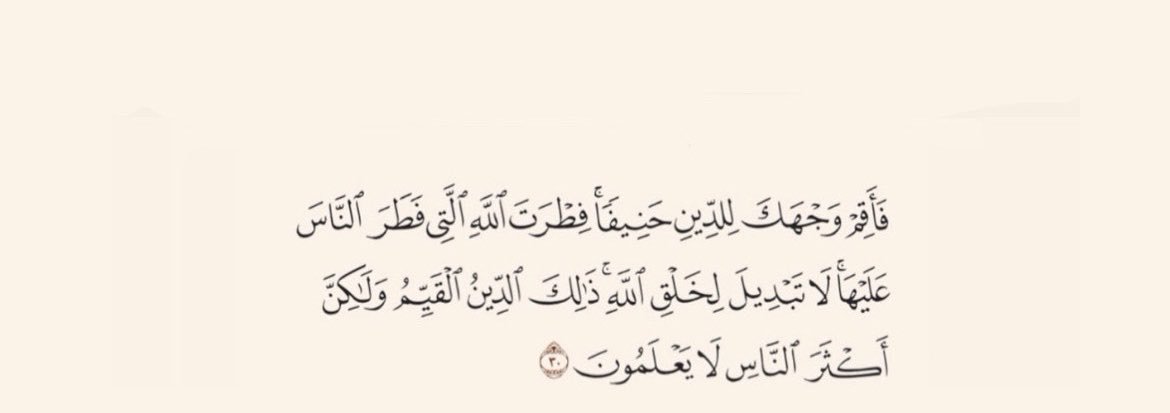 فَأَقِمۡ وَجۡهَكَ لِلدِّينِ حَنِيفٗاۚ فِطۡرَتَ ٱللَّهِ ٱلَّتِي فَطَرَ ٱلنَّاسَ
عَلَيۡهَاۚ لَا تَبۡدِيلَ لِخَلۡقِ ٱللَّهِۚ ذَٰلِكَ ٱلدِّينُ ٱلۡقَيِّمُ وَلَٰكِنَّ
أَكۡثَرَ ٱلنَّاسِ لَا يَعۡلَمُونَ ٣٠